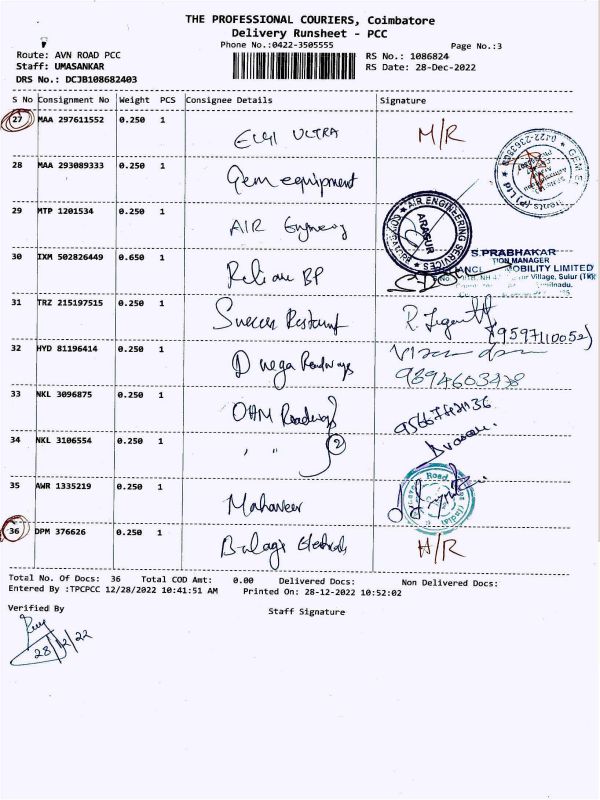 THE PROFESSIONAL COURIERS, Coimbatore
Delivery Runsheet - PCC
Phone No.:0422-3505555
Page No.:3
Route: AVN ROAD PCC
RS No.: 1086824
Staff: UMASANKAR
RS Date: 28-Dec-2022
DRS No.: DCJB108682403
S No Consignment No Weight PCS Consignee Details Signature
27 MAA 297611552 0.250 1
ELGI ULTRA M/R
28 MAA 293089333 0.250 1
Gem equipment
29 MTP 1201534 0.250 1
AIR Engineering
AIR ENGINEERING SERVICES
ARASUR
30 IXM 502826449 0.650 1
Reliance BP
S.PRABHAKAR
TION MANAGER
MOBILITY LIMITED
Village, Sulur (TK)
31 TRZ 215197515 0.250 1
Success Restaurant
(9597110052)
32 HYD 81196414 0.250 1
Durga Roadways
9894603478
33 NKL 3096875 0.250 1
OHM Roadways
34 NKL 3106554 0.250 1
" 2
35 AWR 1335219 0.250 1
Mahaveer
36 DPM 376626 0.250 1
Balaji Electricals H/R
Total No. Of Docs: 36 Total COD Amt: 0.00 Delivered Docs: Non Delivered Docs:
Entered By :TPCPCC 12/28/2022 10:41:51 AM Printed On: 28-12-2022 10:52:02
Verified By
Staff Signature
28/12/22